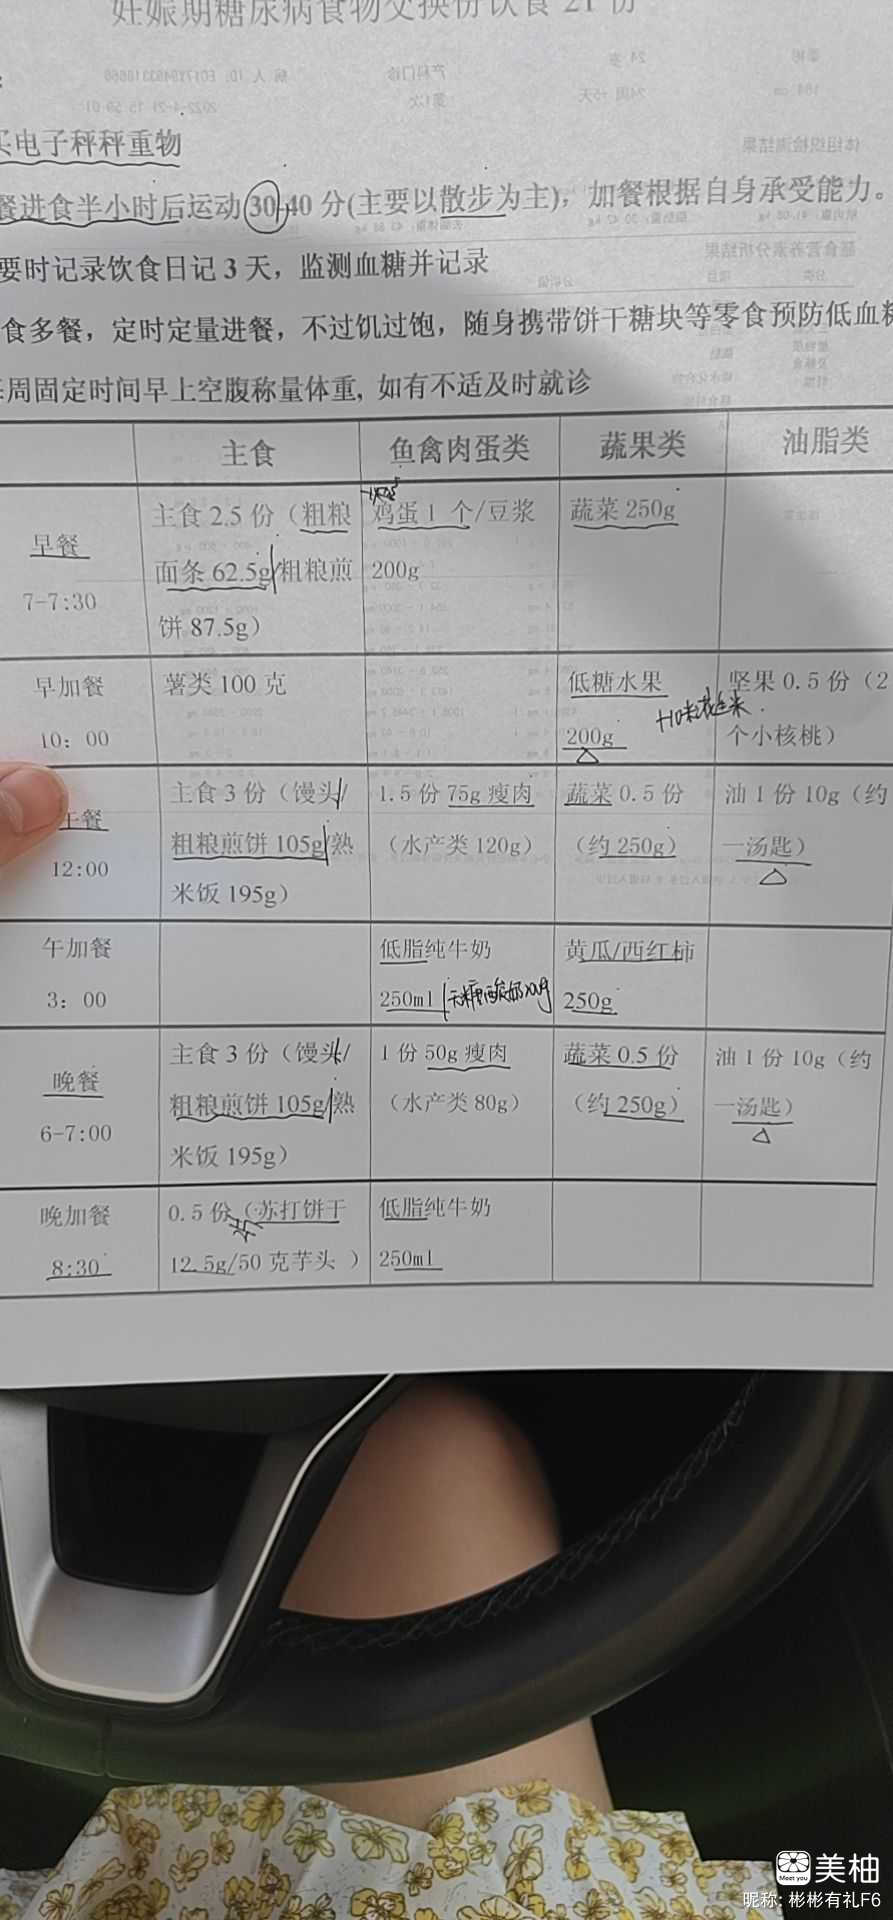 妊娠期糖尿病食物交换份饮食 21 份
买电子秤秤重物
餐进食半小时后运动 30-40 分(主要以散步为主)，加餐根据自身承受能力。
要时记录饮食日记 3 天，监测血糖并记录
食多餐，定时定量进餐，不过饥过饱，随身携带饼干糖块等零食预防低血糖
周固定时间早上空腹称量体重, 如有不适及时就诊
主食 鱼禽肉蛋类 蔬果类 油脂类
早餐
7-7:30
主食 2.5 份（粗粮
面条 62.5g/粗粮煎
饼 87.5g）
鸡蛋 1 个/豆浆
200g
蔬菜 250g
早加餐
10：00
薯类 100 克
低糖水果
200g
+10粒花生米
坚果 0.5 份（2
个小核桃）
午餐
12:00
主食 3 份（馒头/
粗粮煎饼 105g/熟
米饭 195g）
1.5 份 75g 瘦肉
（水产类 120g）
蔬菜 0.5 份
（约 250g）
油 1 份 10g（约
一汤匙）
午加餐
3：00
低脂纯牛奶
250ml
无糖酸奶
黄瓜/西红柿
250g
晚餐
6-7:00
主食 3 份（馒头/
粗粮煎饼 105g/熟
米饭 195g）
1 份 50g 瘦肉
（水产类 80g）
蔬菜 0.5 份
（约 250g）
油 1 份 10g（约
一汤匙）
晚加餐
8:30
0.5 份（苏打饼干
12.5g/50 克芋头 ）
低脂纯牛奶
250ml
Meet you 美柚
昵称: 彬彬有礼F6